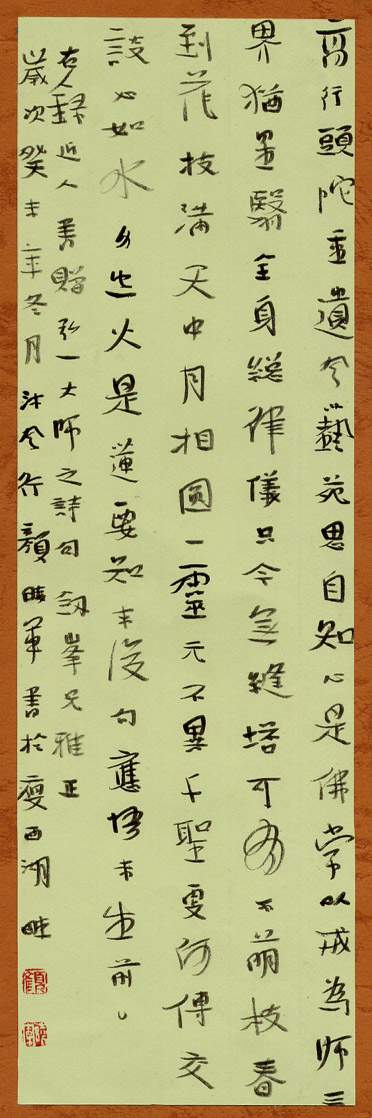 高行頭陀重遺令藝苑思自知心是佛常以戒為師三
界猶翳全身總律儀只今無縫塔可有不萌枝春
到花枝滿天中月相圓一靈元不異千聖更何傳交
誼心如水火是蓮要知末後句應悟未生前
右錄近人書贈弘一大師之詩句劍峯兄雅正
歲次癸未年冬月顏軍書於瘦西湖畔